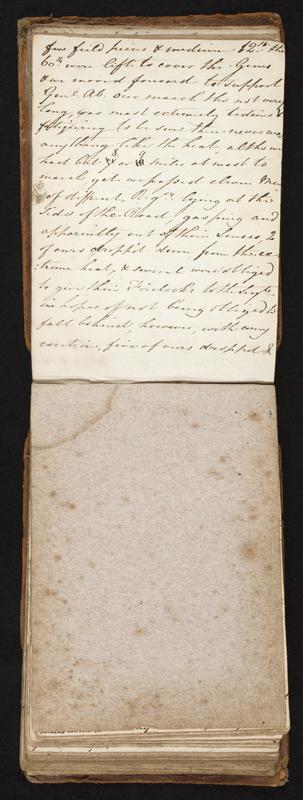 few field pieces & medium 12.th &
60th were left to cover the Guns
& we moved forward to support
Genl. Ab. our march tho not very
long, was most extremely tedious &
fatiguing to be sure there never was
anything like the heat, altho we
had only 8 or miles at most to
march yet we passed eleven Men
of differt. Regts. lying at the
sides of the Road gasping and
apparently out of their Senses, 2
of ours dropp'd down from the ex-
:treme heat, & several were obliged
to give their Firelocks to the Serjts.
in hopes of not being obliged to
fall behind, however, with every
exertion, five of ours dropped &